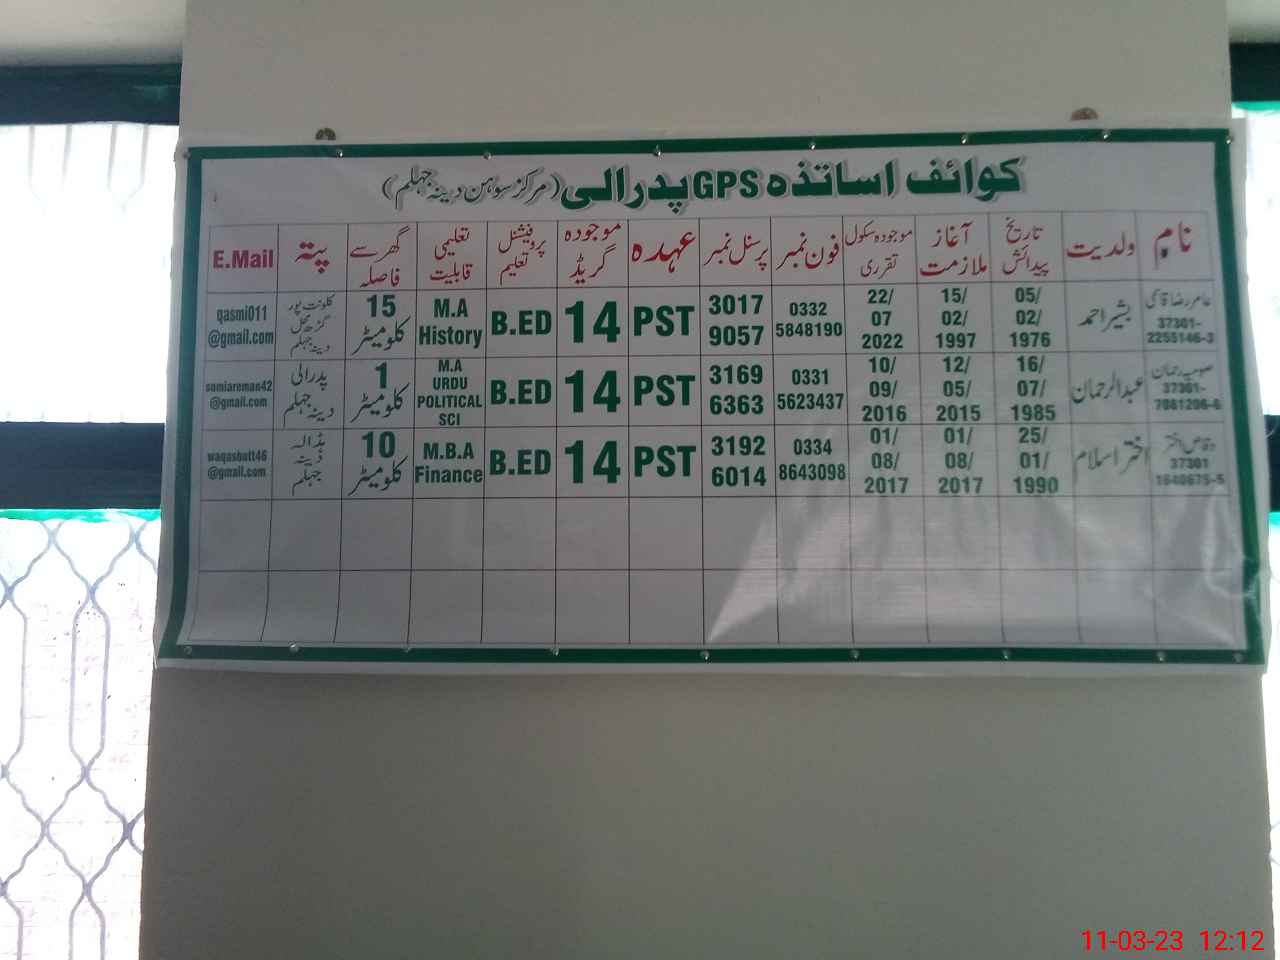 کوائف اساتذہ GPS پدرالی (مرکز سوہن دینہ جہلم)
نام ولدیت تاریخ پیدائش آغاز ملازمت موجودہ سکول تقرری فون نمبر پرسنل نمبر عہدہ موجودہ گریڈ پروفیشنل تعلیم تعلیمی قابلیت گھر سے فاصلہ پتہ E.Mail
عامر رضا قاسمی 37301-2255146-3 بشیر احمد 05/02/1976 15/02/1997 22/07/2022 0332 5848190 3017 9057 PST 14 B.ED M.A History 15 کلومیٹر دینہ جہلم qasmi011@gmail.com
صومیہ رحمان 37301- عبدالرحمان 16/07/1985 12/05/2015 10/09/2016 0331 5623437 3169 6363 PST 14 B.ED M.A URDU POLITICAL SCI 1 کلومیٹر پدرالی دینہ جہلم somiareman42@gmail.com
وقاص اختر 37301 1640675-5 اختر اسلام 25/01/1990 01/08/2017 01/08/2017 0334 8643098 3192 6014 PST 14 B.ED M.B.A Finance 10 کلومیٹر دینہ جہلم waqasbutt46@gmail.com
11-03-23 12:12